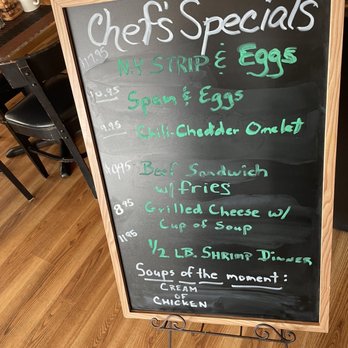 Chefs' Specials
17.95
N.Y STRIP & Eggs
Spam & Eggs
9.95
Chili-Chedder Omelet
10.95
Beef Sandwich
w/fries
8.95
Grilled Cheese w/
Cup of Soup
11.95
1/2 LB. SHRIMP DINNER
Soups of the moment:
CREAM
OF
CHICKEN